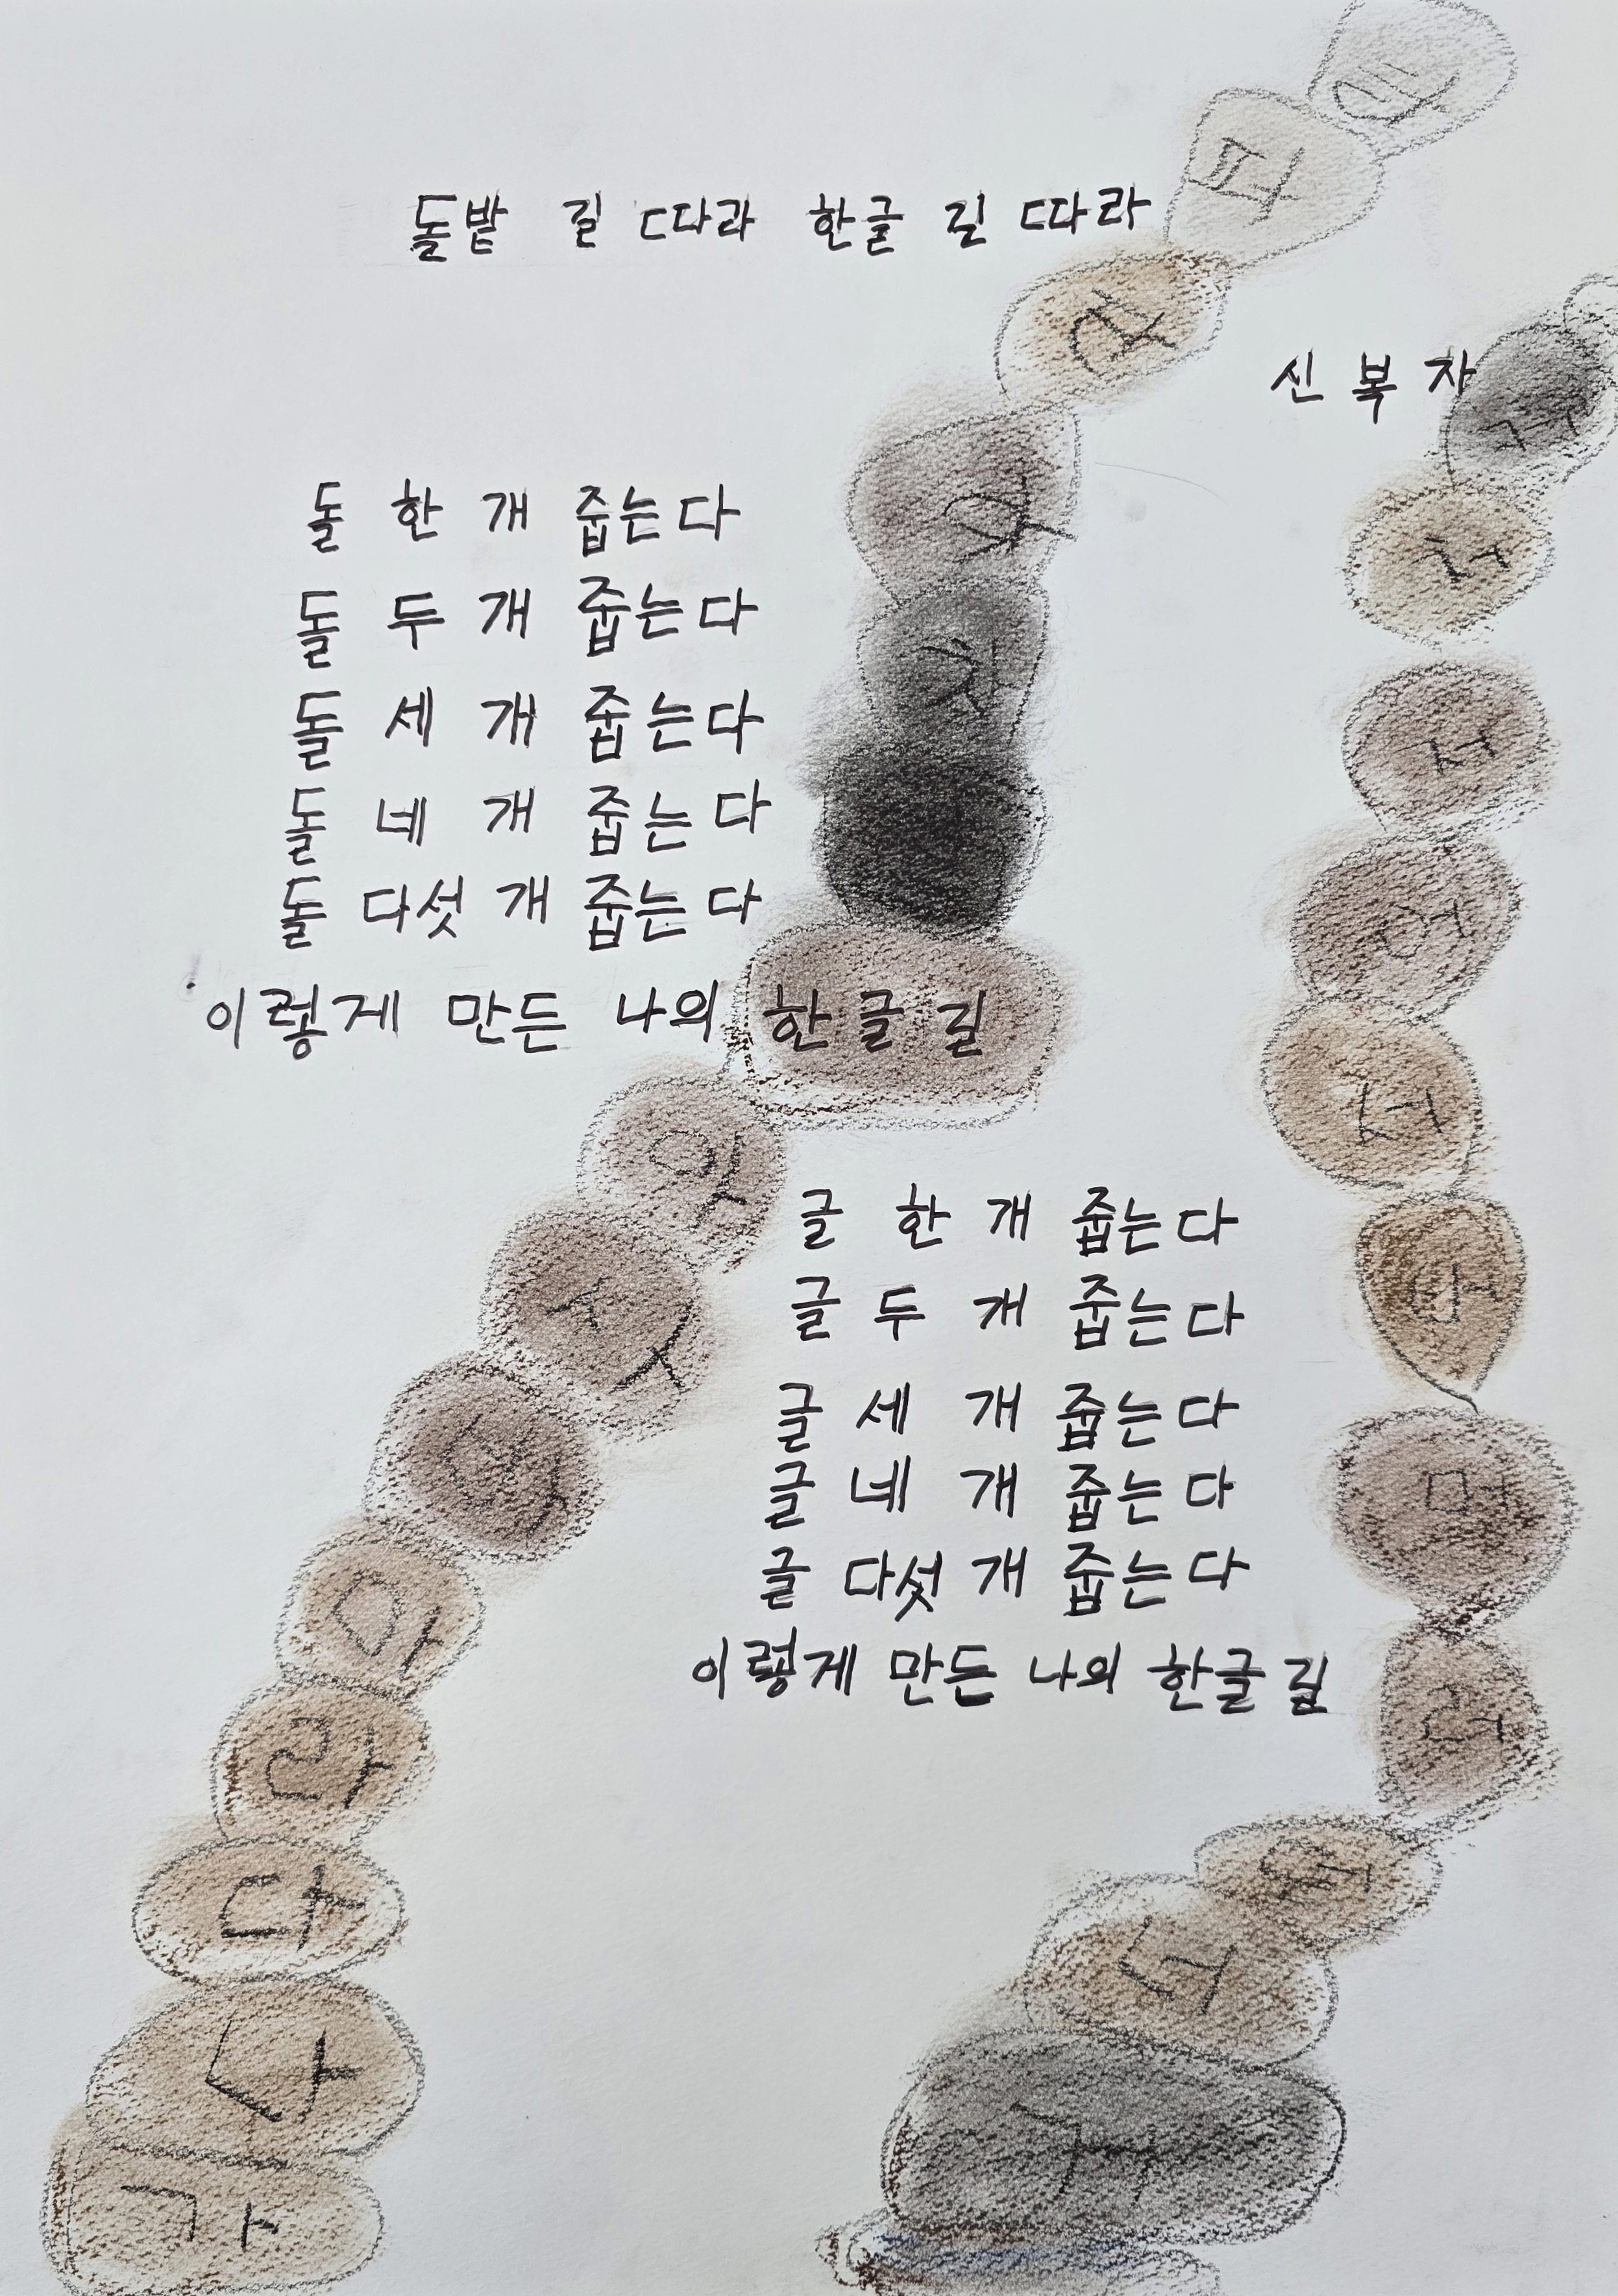 돌밭 길 따라 한글 길 따라
신복자
돌 한 개 줍는다
돌 두 개 줍는다
돌 세 개 줍는다
돌 네 개 줍는다
돌 다섯 개 줍는다
이렇게 만든 나의 한글 길
글 한 개 줍는다
글 두 개 줍는다
글 세 개 줍는다
글 네 개 줍는다
글 다섯 개 줍는다
이렇게 만든 나의 한글 길
가
나
다
라
마
바
사
아
자
차
카
타
파
하
거
너
더
러
머
버
서
어
저
처
커